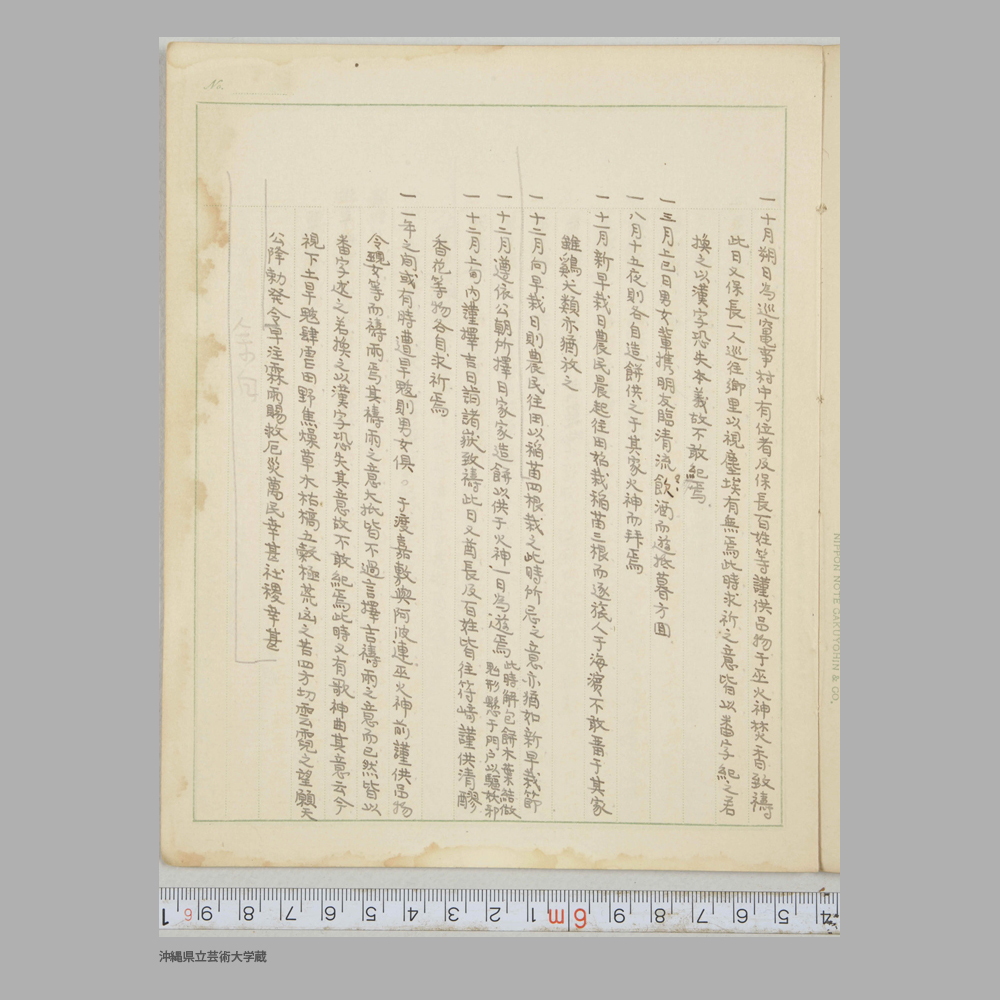 No.
一十月朔日為巡竃事村中有位者及保長百姓等謹供品物于巫火神焚香致禱
此日又保長一人巡往御里以視塵埃有無焉此時求祈之意皆以番字紀之若
換之以漢字恐失本義故不敢紀焉
一三月上巳日男女輩携朋友臨清流飲酒而遊抵暮方回
一八月十五夜則各自造餅供之于其家火神而拜焉
一十一月新早栽日農民晨起往田拈栽稲苗三根而逐旅人于海濱不敢畱于其家
雖鷄犬類亦猶放之
一十二月向早栽日則農民往田以稲苗四根栽之此時所忌之意亦猶如新早栽節
一十二月遵依公朝所擇日家家造餅以供于火神一日為遊焉此時解包餅木葉結做
鬼形懸于門戸以驅妖邪
一十二月上旬内謹擇吉日詣諸嶽致禱此日又酋長及百姓皆往符崎謹供清醪
香花等物各自求祈焉
一一年之間或有時遭旱魃則男女俱。于渡嘉敷與阿波連巫火神前謹供品物
令醜女等而禱雨焉其禱雨之意大抵皆不過言擇吉禱雨之意而已然皆以
番字述之若換之以漢字恐失其意故不敢紀焉此時又有歌神曲其意云今
視下土旱魃肆虐田野焦燥草木枯槁五穀極荒凶之苦四方切雲霓之望願天
公降勅発令軍注霖雨賜救厄災萬民幸甚社稷幸甚
NIPPON NOTE GAKUYOHIN & CO.
1 6 9 8 7 6 5 4 3 2 1 6m 9 8 7 6 5 4
沖縄県立芸術大学蔵